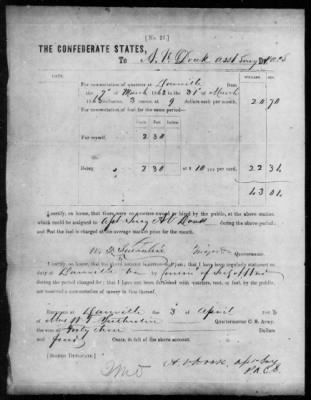 [No. 21.]
THE CONFEDERATE STATES,
To A. V. Douk asst Surg Dr. P.A.C.S
DATE. DOLLARS. CTS.
For commutation of quarters at Danville from
the 7th March 1865 to the 31st of March
1865 inclusive, 3 rooms at 9 dollars each per month. 20 70
For commutation of fuel for the same period—
Cords Feet Inches
For myself. 2 30
Being 2 30 at $10 per cord. 22 31
43 01
I certify, on honor, that there were no quarters owned or hired by the public, at the above station
which could be assigned to during the above period;
and that the fuel is charged at the average market price for the month.
Major Quartermaster.
I certify, on honor, that the above account is ; that I have been regularly stationed on
duty at Danville Va by
during the period charged for; that I have not been furnished with quarters, rent, or fuel, by the public, nor
received a commutation of money in lieu thereof.
Received at Danville the 3 of April 1865
of Quartermaster C. S. Army,
the sum of forty three Dollars
and cents, in full of the above account.
[SIGNED DUPLICATE.]
P.A.C.S.